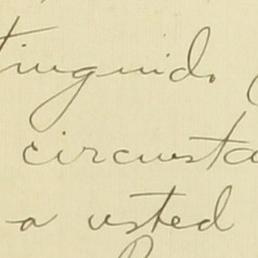 tinguido
circunsta
a usted